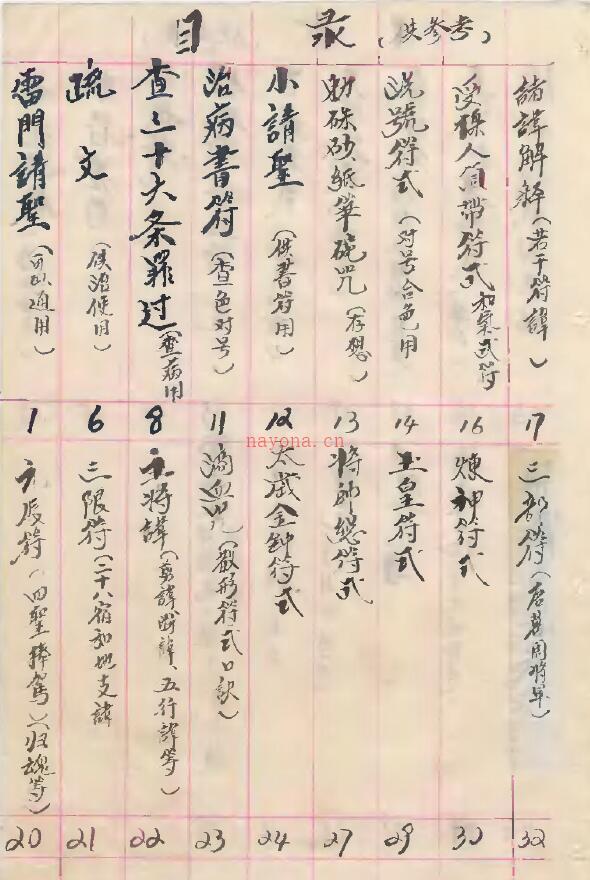 目录（供参考）
雷門請聖（可以通用）
1
疏文（供治使用）
6
查三十六条罪过（查病用
8
治病書符（查色对号）
11
小請聖（供書符用）
12
勅硃砂紙筆硯咒（存想）
13
洗號符式（对号合色用
14
人帶符式
16
諸諱解釋（若干符諱）
17
元辰符（四聖捧駕）（归魂等）
20
三限符（二十八宿和地支諱
21
主将諱（剪諱、断諱、五行諱等）
22
滴血咒（截形符式口訣）
23
太歲金鈡符式
24
将帥總符式
27
玉皇符式
29
煉神符式
30
三部符（唐葛周将軍）
32
nayona.cn